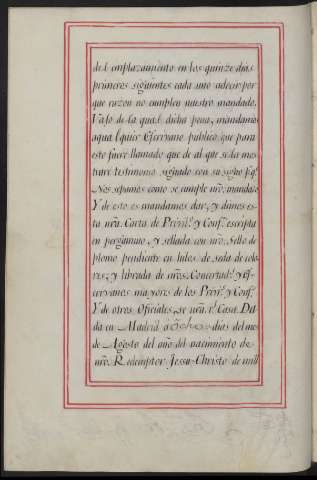 del emplazamiento en los quinze dias
primeros siguientes cada uno adecir por
que razon no cumplen nuestro mandado.
Vajo de la qual dicha pena, mandamos
aqualquier Escrivano publico, que para
esto fuere llamado que de al que se la mos-
trare testimonio signado con su signo Pq.
Nos sepamos como se cumple nro. mandado
Y de esto os mandamos dar, y dimos es-
ta nra. Carta de Previl.º y Conf.on escripta
en pergamino, y sellada con nro. Sello de
plomo pendiente en hilos de seda de colo-
res, y librada de nros. Concertad.s y Es-
crivanos mayores de los Previl.s y Conf.
Y de otros Oficiales, de nra. r.l Casa. Da-
da en Madrid á ocho dias del mes
de Agosto del año del nacimiento de
nro. Redemptor Jessu-Christo de mill